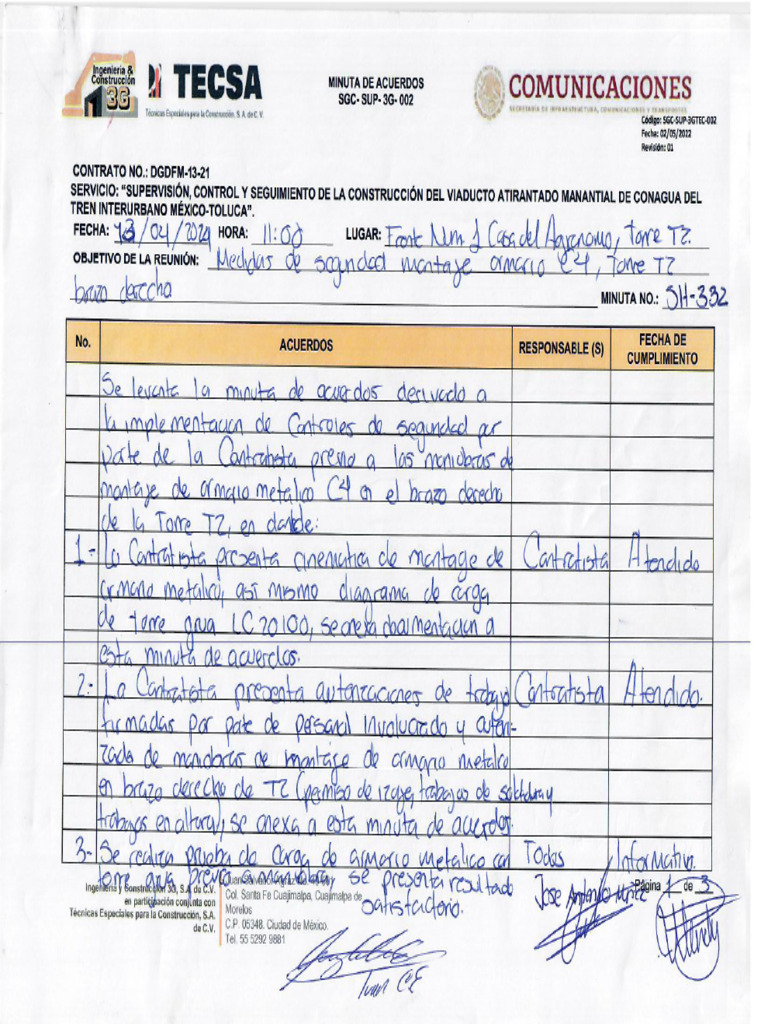 Ingeniería &
Construcción
3G
TECSA
Técnicas Especiales para la Construcción, S.A. de C.V.
MINUTA DE ACUERDOS
SGC- SUP- 3G- 002
COMUNICACIONES
SECRETARÍA DE INFRAESTRUCTURA, COMUNICACIONES Y TRANSPORTES
Código: SGC-SUP-3GTEC-002
Fecha: 02/05/2022
Revisión: 01
CONTRATO NO.: DGDFM-13-21
SERVICIO: “SUPERVISIÓN, CONTROL Y SEGUIMIENTO DE LA CONSTRUCCIÓN DEL VIADUCTO ATIRANTADO MANANTIAL DE CONAGUA DEL
TREN INTERURBANO MÉXICO-TOLUCA”.
FECHA: 13/04/2024 HORA: 11:00 LUGAR: Frente Num 1 Casa del Agronomo, Torre T2.
OBJETIVO DE LA REUNIÓN: Medidas de seguridad montaje armario C4, Torre T2
brazo derecho MINUTA NO.: SH-332
No. ACUERDOS RESPONSABLE (S) FECHA DE CUMPLIMIENTO
Se levanta la minuta de acuerdos derivado a
la implementacion de Controles de seguridad por
parte de la Contratista previo a las maniobras de
montaje de armario metalico C4 en el brazo derecho
de la Torre T2, en donde:
1- La Contratista presenta cinematica de montage de Contratista Atendido
armario metalico, asi mismo diagrama de carga
de torre grua LC20100, se anexa documentacion a
esta minuta de acuerdos.
2- La Contratista presenta autorizaciones de trabajo Contratista Atendido.
firmadas por parte de personal involucrado y autori-
zada de maniobras de montaje de armario metalico
en brazo derecho de T2 (permiso de izaje, trabajos de soldadura y
trabajos en altura), se anexa a esta minuta de acuerdos.
3- Se realiza prueba de carga de armario metalico con Todos Informativo.
torre grua previo a maniobra, se presenta resultado
satisfactorio.
Ingeniería y Construcción 3G, S.A. de C.V.
en participación conjunta con
Técnicas Especiales para la Construcción, S.A.
de C.V.
Col. Santa Fe Cuajimalpa, Cuajimalpa de
Morelos
C.P. 05348. Ciudad de México.
Tel. 55 5292 9881
Jose Antonio
Página 1 de 3
Ivan